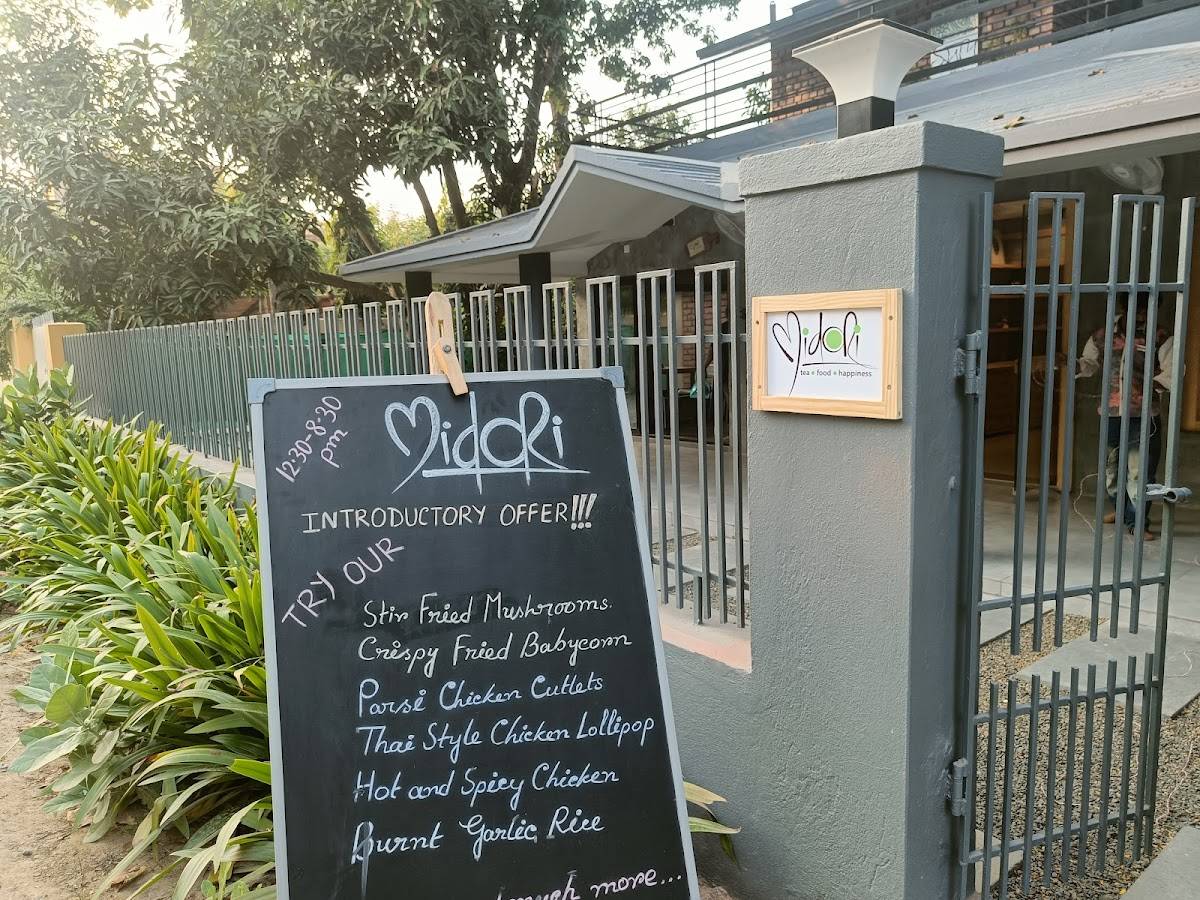 12:30-8:30
pm
Midori
INTRODUCTORY OFFER!!!
TRY OUR
Stir Fried Mushrooms.
Crispy Fried Babycorn
Parsi Chicken Cutlets
Thai Style Chicken Lollipop
Hot and Spicy Chicken
Burnt Garlic Rice
much more...
Midori
tea • food • happiness